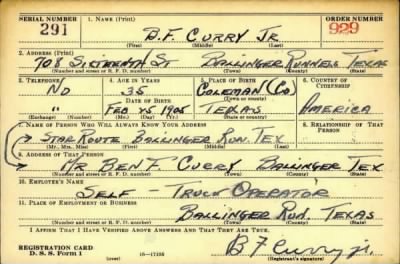 SERIAL NUMBER 1. NAME (Print) ORDER NUMBER
291 B.F. CURRY JR. 929
(First) (Middle) (Last)
2. ADDRESS (Print)
708 SIXTEENTH ST BALLINGER RUNNELS TEXAS
(Number and street or R. F. D. number) (Town) (County) (State)
3. TELEPHONE 4. AGE IN YEARS 5. PLACE OF BIRTH 6. COUNTRY OF CITIZENSHIP
NO 35 COLEMAN (CO)
DATE OF BIRTH (Town or county)
" FEB 25 1905 TEXAS AMERICA
(Exchange) (Number) (Mo.) (Day) (Yr.) (State or country)
7. NAME OF PERSON WHO WILL ALWAYS KNOW YOUR ADDRESS 8. RELATIONSHIP OF THAT PERSON
STAR ROUTE BALLINGER RUN. TEX
(Mr., Mrs., Miss) (First) (Middle) (Last)
9. ADDRESS OF THAT PERSON
MR BEN F. CURRY BALLINGER TEX
(Number and street or R. F. D. number) (Town) (County) (State)
10. EMPLOYER'S NAME
SELF TRUCK OPERATOR
11. PLACE OF EMPLOYMENT OR BUSINESS
BALLINGER RUN. TEXAS
(Number and street or R. F. D. number) (Town) (County) (State)
I AFFIRM THAT I HAVE VERIFIED ABOVE ANSWERS AND THAT THEY ARE TRUE.
REGISTRATION CARD B F Curry jr.
D. S. S. Form 1 (over) 16—17105 (Registrant's signature)